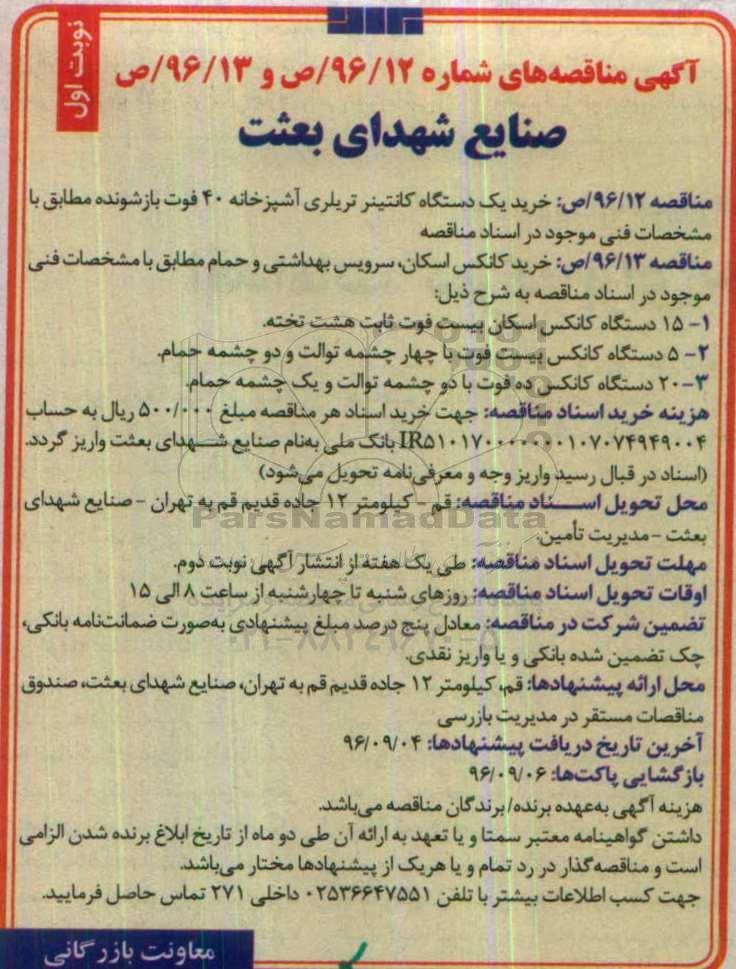 نوبت اول
آگهی مناقصه‌های شماره ۹۶/۱۲/ص و ۹۶/۱۳/ص
صنایع شهدای بعثت
مناقصه ۹۶/۱۲/ص: خرید یک دستگاه کانتینر تریلری آشپزخانه ۴۰ فوت بازشونده مطابق با
مشخصات فنی موجود در اسناد مناقصه
مناقصه ۹۶/۱۳/ص: خرید کانکس اسکان، سرویس بهداشتی و حمام مطابق با مشخصات فنی
موجود در اسناد مناقصه به شرح ذیل:
۱- ۱۵ دستگاه کانکس اسکان بیست فوت ثابت هشت تخته.
۲- ۵ دستگاه کانکس بیست فوت با چهار چشمه توالت و دو چشمه حمام.
۳- ۲۰ دستگاه کانکس ده فوت با دو چشمه توالت و یک چشمه حمام.
هزینه خرید اسناد مناقصه: جهت خرید اسناد هر مناقصه مبلغ ۵۰۰/۰۰۰ ریال به حساب
IR۵۱۰۱۷۰۰۰۰۰۰۰۱۰۷۰۷۴۹۴۹۰۰۴ بانک ملی به‌نام صنایع شهدای بعثت واریز گردد.
(اسناد در قبال رسید واریز وجه و معرفی‌نامه تحویل می‌شود)
محل تحویل اسناد مناقصه: قم - کیلومتر ۱۲ جاده قدیم قم به تهران - صنایع شهدای
ParsNamadData
بعثت - مدیریت تأمین.
مهلت تحویل اسناد مناقصه: طی یک هفته از انتشار آگهی نوبت دوم.
اوقات تحویل اسناد مناقصه: روزهای شنبه تا چهارشنبه از ساعت ۸ الی ۱۵
تضمین شرکت در مناقصه: معادل پنج درصد مبلغ پیشنهادی به‌صورت ضمانت‌نامه بانکی،
چک تضمین شده بانکی و یا واریز نقدی.
محل ارائه پیشنهادها: قم، کیلومتر ۱۲ جاده قدیم قم به تهران، صنایع شهدای بعثت، صندوق
مناقصات مستقر در مدیریت بازرسی
آخرین تاریخ دریافت پیشنهادها: ۹۶/۰۹/۰۴
بازگشایی پاکت‌ها: ۹۶/۰۹/۰۶
هزینه آگهی به‌عهده برنده/ برندگان مناقصه می‌باشد.
داشتن گواهینامه معتبر سمتا و یا تعهد به ارائه آن طی دو ماه از تاریخ ابلاغ برنده شدن الزامی
است و مناقصه‌گذار در رد تمام و یا هریک از پیشنهادها مختار می‌باشد.
جهت کسب اطلاعات بیشتر با تلفن ۰۲۵۳۶۶۴۷۵۵۱ داخلی ۲۷۱ تماس حاصل فرمایید.
معاونت بازرگانی